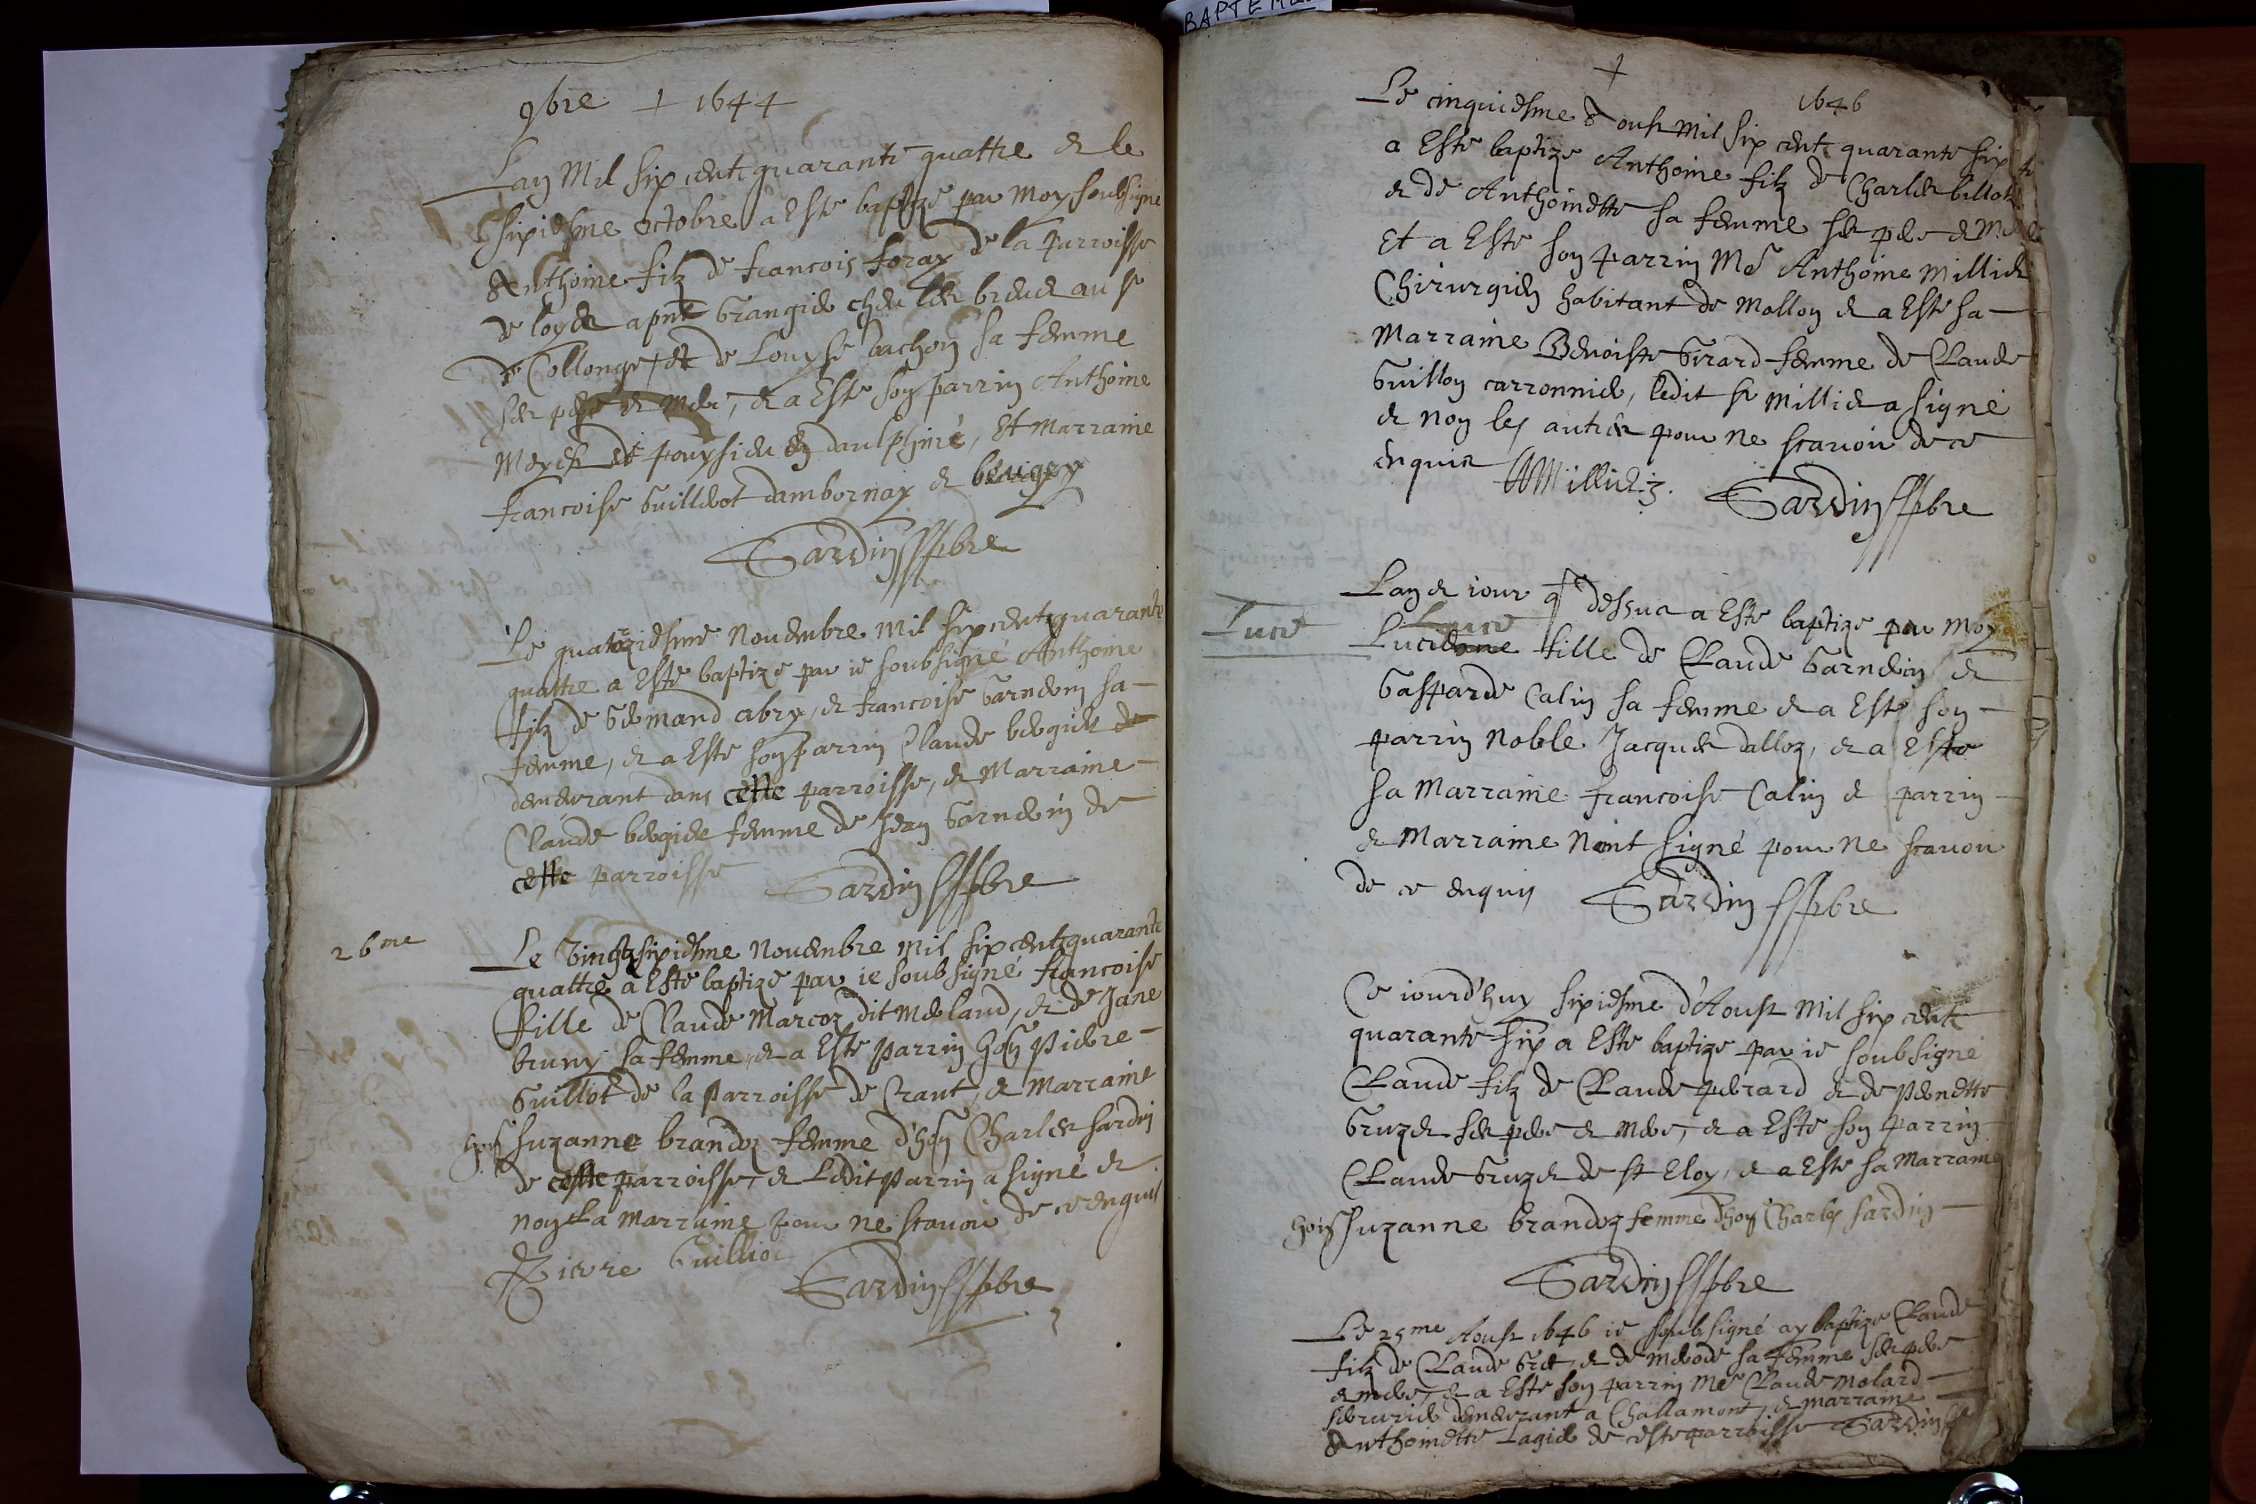 BAPTEME
9bre + 1644
Lan Mil six cent quarante quattre & le
sixiesme octobre a Este baptize par Moy soubsigne
Anthoine filz de francois foray de la parroisse
de loyes apnt Grangier cheu les au sr
de Collonge, et de Louyse bachon sa femme
ses pere & Mere, & a Este son parrin Anthoine
en daulphiné, Et Marraine
francoise Guilliot dambornay & beugey
Sardin pbre
Le quatorziesme Nouembre Mil six cent quarante
quattre a Este baptize par ie soubsigné Anthoine
filz de abry, & francoise Garnem sa
femme, & a Este son parrin Claude bergier
demeurant dans ceste parroisse, & Marraine
Claude bergier femme de Jean Garnem de
ceste parroisse Sardin pbre
26me
Le Vingt sixiesme Nouembre Mil six cent quarante
quattre a Este baptize par ie soubsigné francoise
fille de Claude Marcoz dit Merland, & de Jane
bruny sa femme, & a Este parrin hon Pierre
Guilliot de la parroisse de Crant, & Marraine
hon Suzanne brandoz femme d'hon Charles Sardin
de ceste parroisse, & Ledit Parrin a signé &
non La Marraine pour ne scauoir de ce enquis
Pierre Guilliot
Sardin pbre
+
1646
Le cinquiesme d'oust Mil six cent quarante six
a Este baptize Anthoine filz de Charles billot
& de Anthoinette sa femme ses pere & Mere
Et a Este son parrin Me Anthoine Millier
Chirurgien habitant de Mollon & a Este sa
Marraine Benoiste Girard femme de Claude
Guillon carronnier, ledit sr Millier a signé
& non les autres pour ne scauoir de ce
enquis AMillier. Sardin pbre
Luce
Lan & iour q dessus a Este baptize par Moy
Luce
fille de Claude Garnem &
Gasparde Calin sa femme & a Este son
parrin Noble Jacques dalloz, & a Este
sa Marraine francoise Calin & parrin
& Marraine N'ont signé pour ne scauoir
de ce enquis Sardin pbre
Ce iourd'huy sixiesme d'Aoust Mil six cent
quarante six a Este baptize par ie soubsigné
Claude filz de Claude perard & de Pernette
Gruzer ses pere & Mere, & a Este son parrin
Claude Gruzer de st Eloy, & a Este sa Marraine
hon Suzanne brandoz femme d'hon Charles Sardin
Sardin pbre
Le 25me Aoust 1646 ie soubsigné ay baptize Claude
filz de Claude & de sa femme ses pere
& mere, & a Este son parrin Me Claude Molard
serrurier demeurant a Challamont, & marraine
Anthoinette Lagier de ceste parroisse Sardin